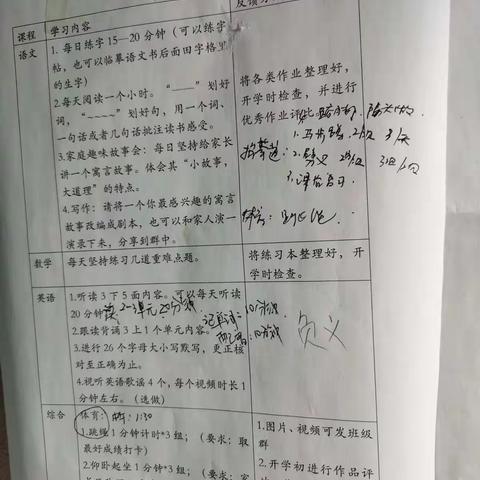 课程
学习内容
语文
1. 每日练字 15—20 分钟（可以练字
帖，也可以临摹语文书后面田字格里
的生字）
2.每天阅读一个小时。“____”划好
词，“~~~~”划好句，用一个词、
一句话或者几句话批注读书感受。
3.家庭趣味故事会：每日坚持给家长
讲一个寓言故事。体会其“小故事，
大道理”的特点。
4.写作：请将一个你最感兴趣的寓言
故事改编成剧本，也可以和家人演一
演录下来，分享到群中。
将各类作业整理好，
开学时检查，并进行
优秀作业评比
数学
每天坚持练习几道重难点题。
将练习本整理好，开
学时检查。
英语
1.听读 3 下 5 面内容。可以每天听读
20 分钟
2.跟读背诵 3 上 1 个单元内容。
3.进行 26 个字母大小写默写，更正核
对至正确为止。
4.视听英语歌谣 4 个，每个视频时长 1
分钟左右。（选做）
综合
体育：
1:30
1.跳绳 1 分钟计时*3 组；（要求：取
最好成绩打卡）
2.仰卧起坐 1 分钟*3 组；（要求：
1.图片、视频可发班级
群
2.开学初进行作品评